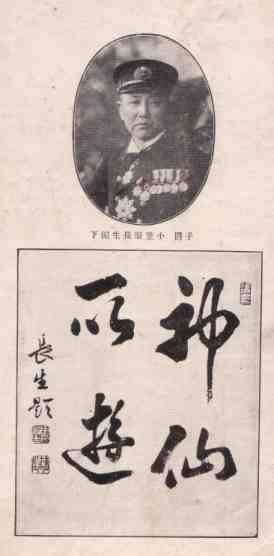 子爵 小笠原長生閣下
神仙
所遊
長生題